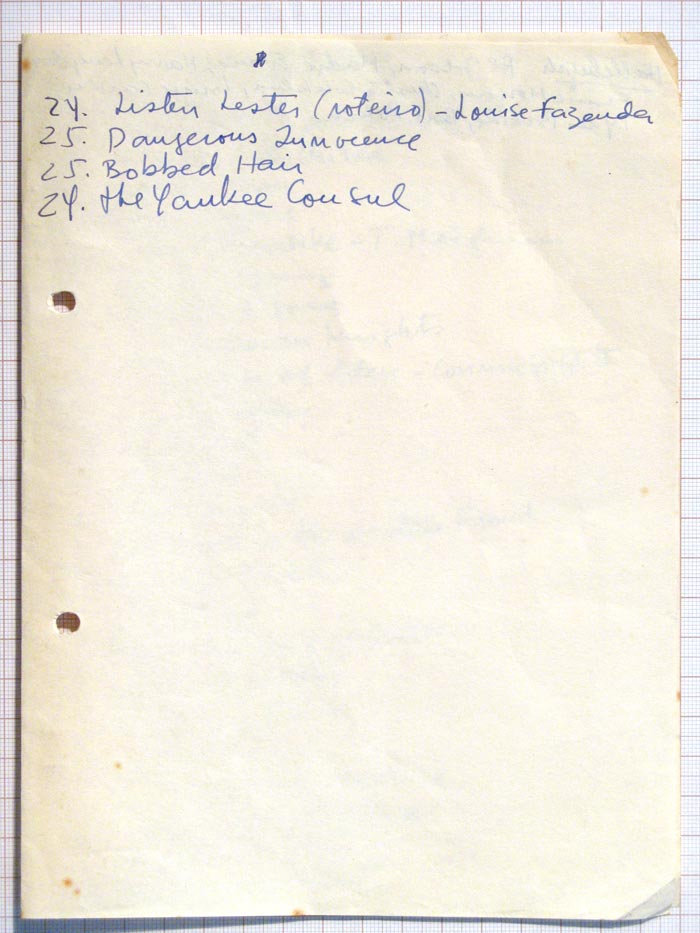 24. Listen Lester (roteiro) - Louise Fazenda
25. Dangerous Innocence
25. Bobbed Hair
24. the Yankee Consul